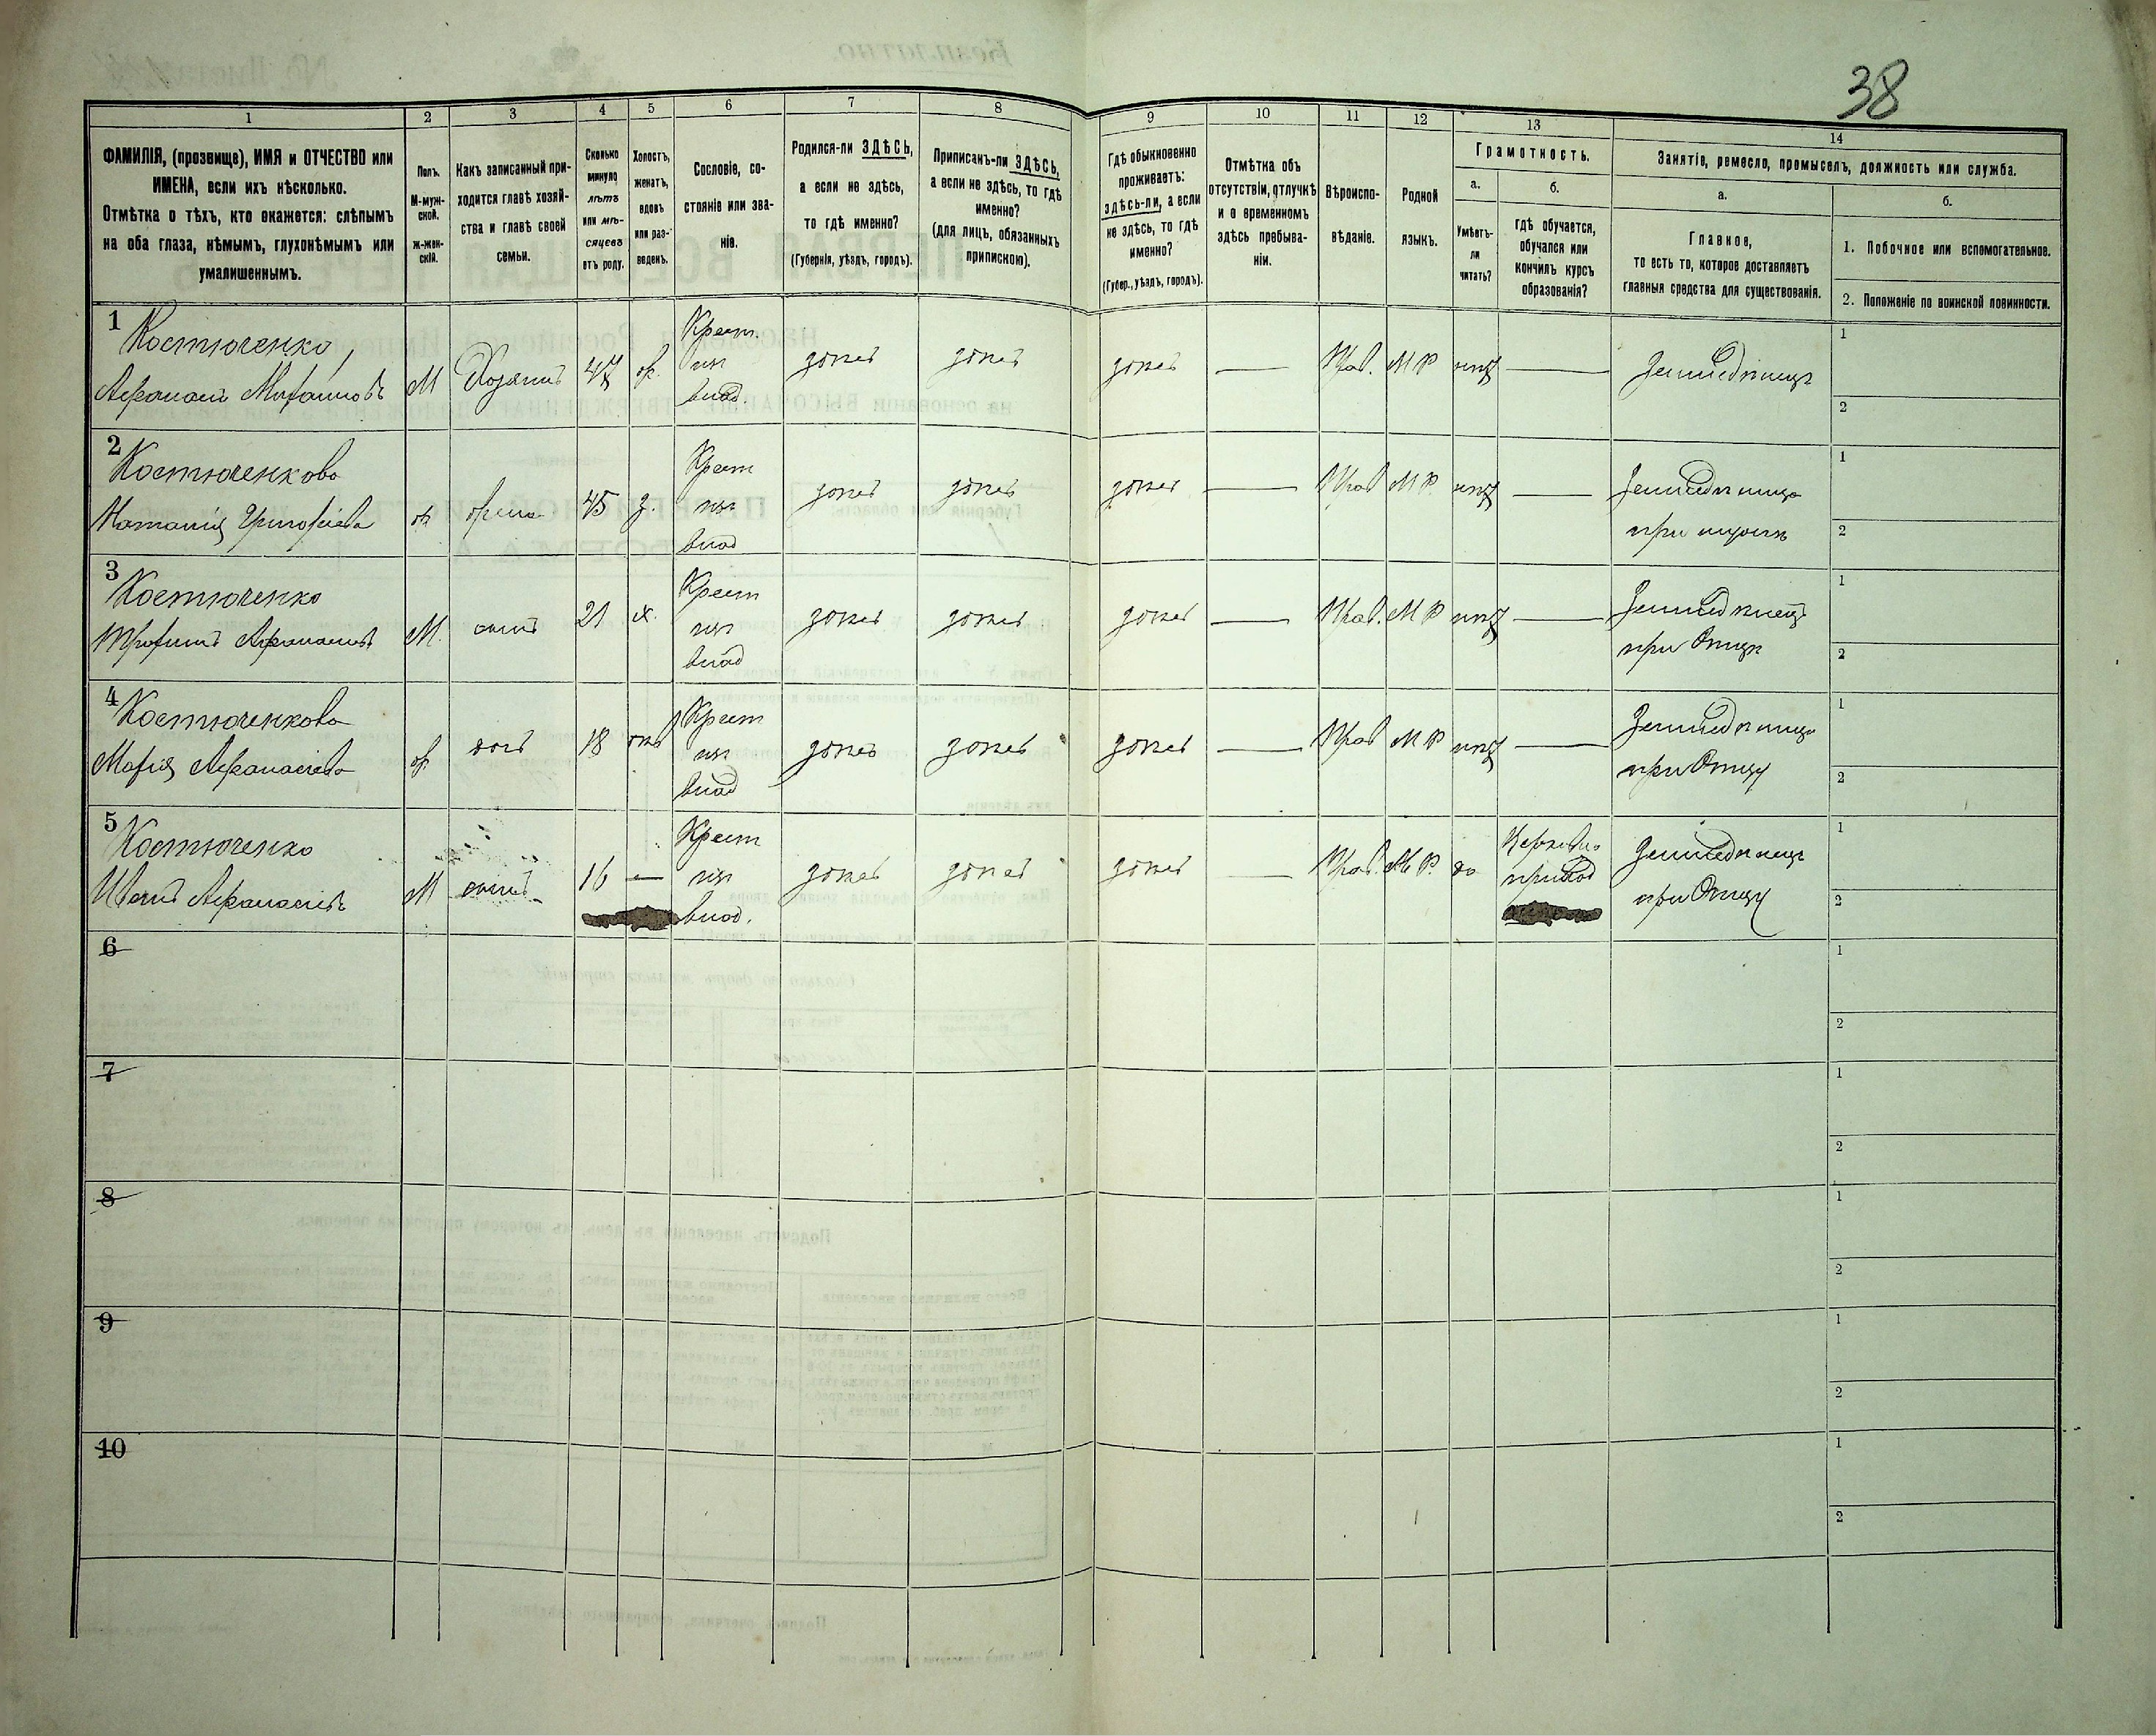 38
1 2 3 4 5 6 7 8 9 10 11 12 13 14
ФАМИЛІЯ, (прозвище), ИМЯ и ОТЧЕСТВО или
ИМЕНА, если ихъ нѣсколько.
Отмѣтка о тѣхъ, кто окажется: слѣпымъ
на оба глаза, нѣмымъ, глухонѣмымъ или
умалишеннымъ.
Полъ.
М-муж-
ской.
ж-жен-
скій.
Какъ записанный при-
ходится главѣ хозяй-
ства и главѣ своей
семьи.
Сколько
минуло
лѣтъ
или мѣ-
сяцевъ
отъ роду.
Холостъ,
женатъ,
вдовъ
или раз-
веденъ.
Сословіе, со-
стояніе или зва-
ніе.
Родился-ли ЗДѢСЬ,
а если не здѣсь,
то гдѣ именно?
(Губернія, уѣздъ, городъ).
Приписанъ-ли ЗДѢСЬ,
а если не здѣсь, то гдѣ
именно?
(для лицъ, обязанныхъ
припискою).
Гдѣ обыкновенно
проживаетъ:
здѣсь-ли, а если
не здѣсь, то гдѣ
именно?
(Губер., уѣздъ, городъ).
Отмѣтка объ
отсутствіи, отлучкѣ
и о временномъ
здѣсь пребыва-
ніи.
Вѣроиспо-
вѣданіе.
Родной
языкъ.
Грамотность.
а.
Умѣетъ-
ли
читать?
б.
гдѣ обучается,
обучался или
кончилъ курсъ
образованія?
Занятіе, ремесло, промыселъ, должность или служба.
а.
Главное,
то есть то, которое доставляетъ
главныя средства для существованія.
б.
1. Побочное или вспомогательное.
2. Положеніе по воинской повинности.
1
Костюченко,
Афанасій Михаиловъ
М Хозяинъ 47
Крест.
изъ
влад.
здѣсь здѣсь здѣсь — Прав. М Р нѣтъ — Земледѣлецъ
1
2
2
Костюченкова
Наталія Григорьева
ж жена 45 з.
Крест
изъ
влад
здѣсь здѣсь здѣсь — Прав М Р. нѣтъ —
Земледѣлица
при мужѣ
1
2
3
Костюченко
Трофимъ Афанасьевъ
М. сынъ 21 х.
Крест
изъ
влад
здѣсь здѣсь здѣсь — Прав. М Р нѣтъ —
Земледѣлецъ
при Отцѣ
1
2
4
Костюченкова
Марія Афанасіева
ж дочь 18
Крест
изъ
влад
здѣсь здѣсь здѣсь — Прав М Р нѣтъ —
Земледѣлица
при Отцу
1
2
5
Костюченко
Иванъ Афанасіевъ
М сынъ 16 —
Крест
изъ
влад.
здѣсь здѣсь здѣсь — Прав. М Р. да
Церковно
приход
Земледѣлецъ
при Отцу
1
2
6
1
2
7
1
2
8
1
2
9
1
2
10
1
2